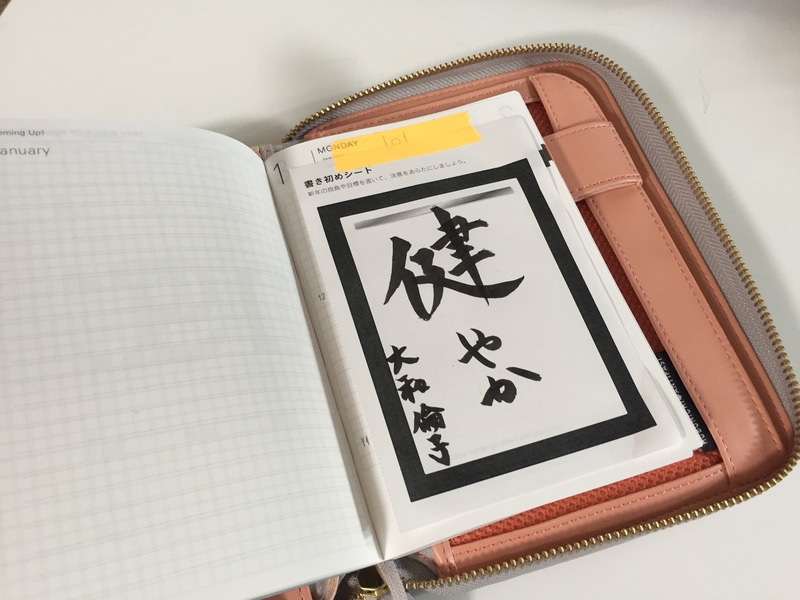 oming Up!
anuary
1
MONDAY
1.1
書き初めシート
新年の抱負や目標を書いて、決意をあらたにしましょう。
健
やか
大和倫子
12
14